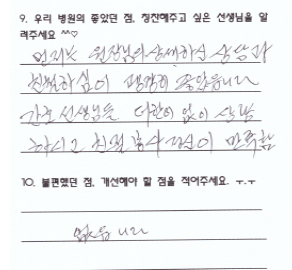 9. 우리 병원의 좋았던 점, 칭찬해주고 싶은 선생님을 알
려주세요 ^^♡
언제나 원장님의 상세하신 상담과
친절하심이 굉장히 좋았습니다
간호 선생님들 더할나위 없이 상냥
하시고 친절 봉사 정신이 만족함
10. 불편했던 점, 개선해야 할 점을 적어주세요. ㅜ.ㅜ
없습니다